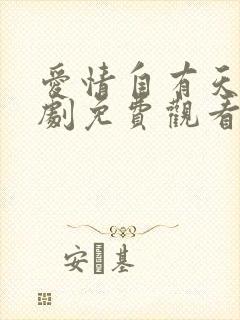 愛情自有天
劇免費觀看
安 基